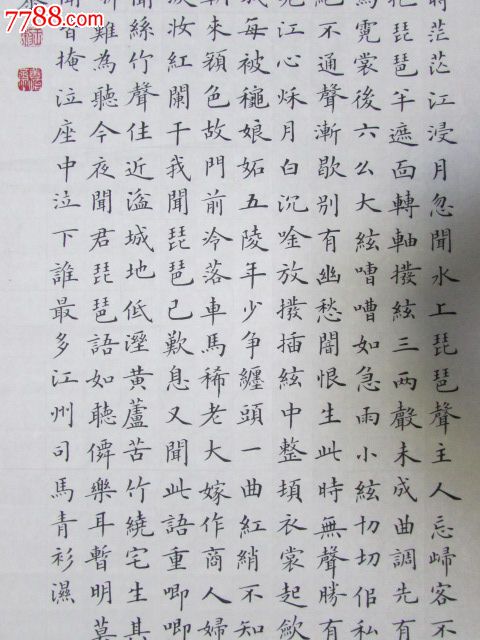 7788.com
時茫茫江浸月忽聞水上琵琶聲主人忘歸客不
琵琶半遮面轉軸撥絃三兩聲未成曲調先有
為霓裳後六么大絃嘈嘈如急雨小絃切切佀私
絕不通聲漸歇別有幽愁闇恨生此時無聲勝有
見江心秌月白沉唫放撥插絃中整頓衣裳起斂
成每被穐娘妬五陵年少爭纏頭一曲紅綃不知
朝來顏色故門前冷落車馬稀老大嫁作商人婦
淚妝紅闌干我聞琵琶已歎息又聞此語重唧唧
聞絲竹聲住近湓城地低溼黃蘆苦竹繞宅生其
難為聽今夜聞君琵琶語如聽僊樂耳暫明莫
聞皆掩泣座中泣下誰最多江州司馬青衫濕